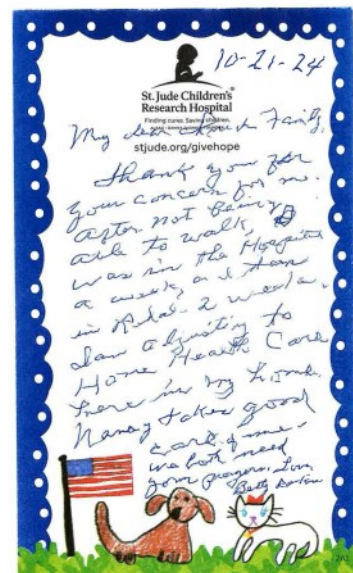 10-21-24
St. Jude Children's
Research Hospital
Finding cures. Saving children.
My dear Church Family,
stjude.org/givehope
Thank you for
your concern for me.
After not being
able to walk, I
was in the Hospital
a week, and then
in Rehab 2 weeks.
I am adjusting to
Home Health Care
here in my home.
Nancy takes good
care of me -
we both need
your prayers. Love,
Betty